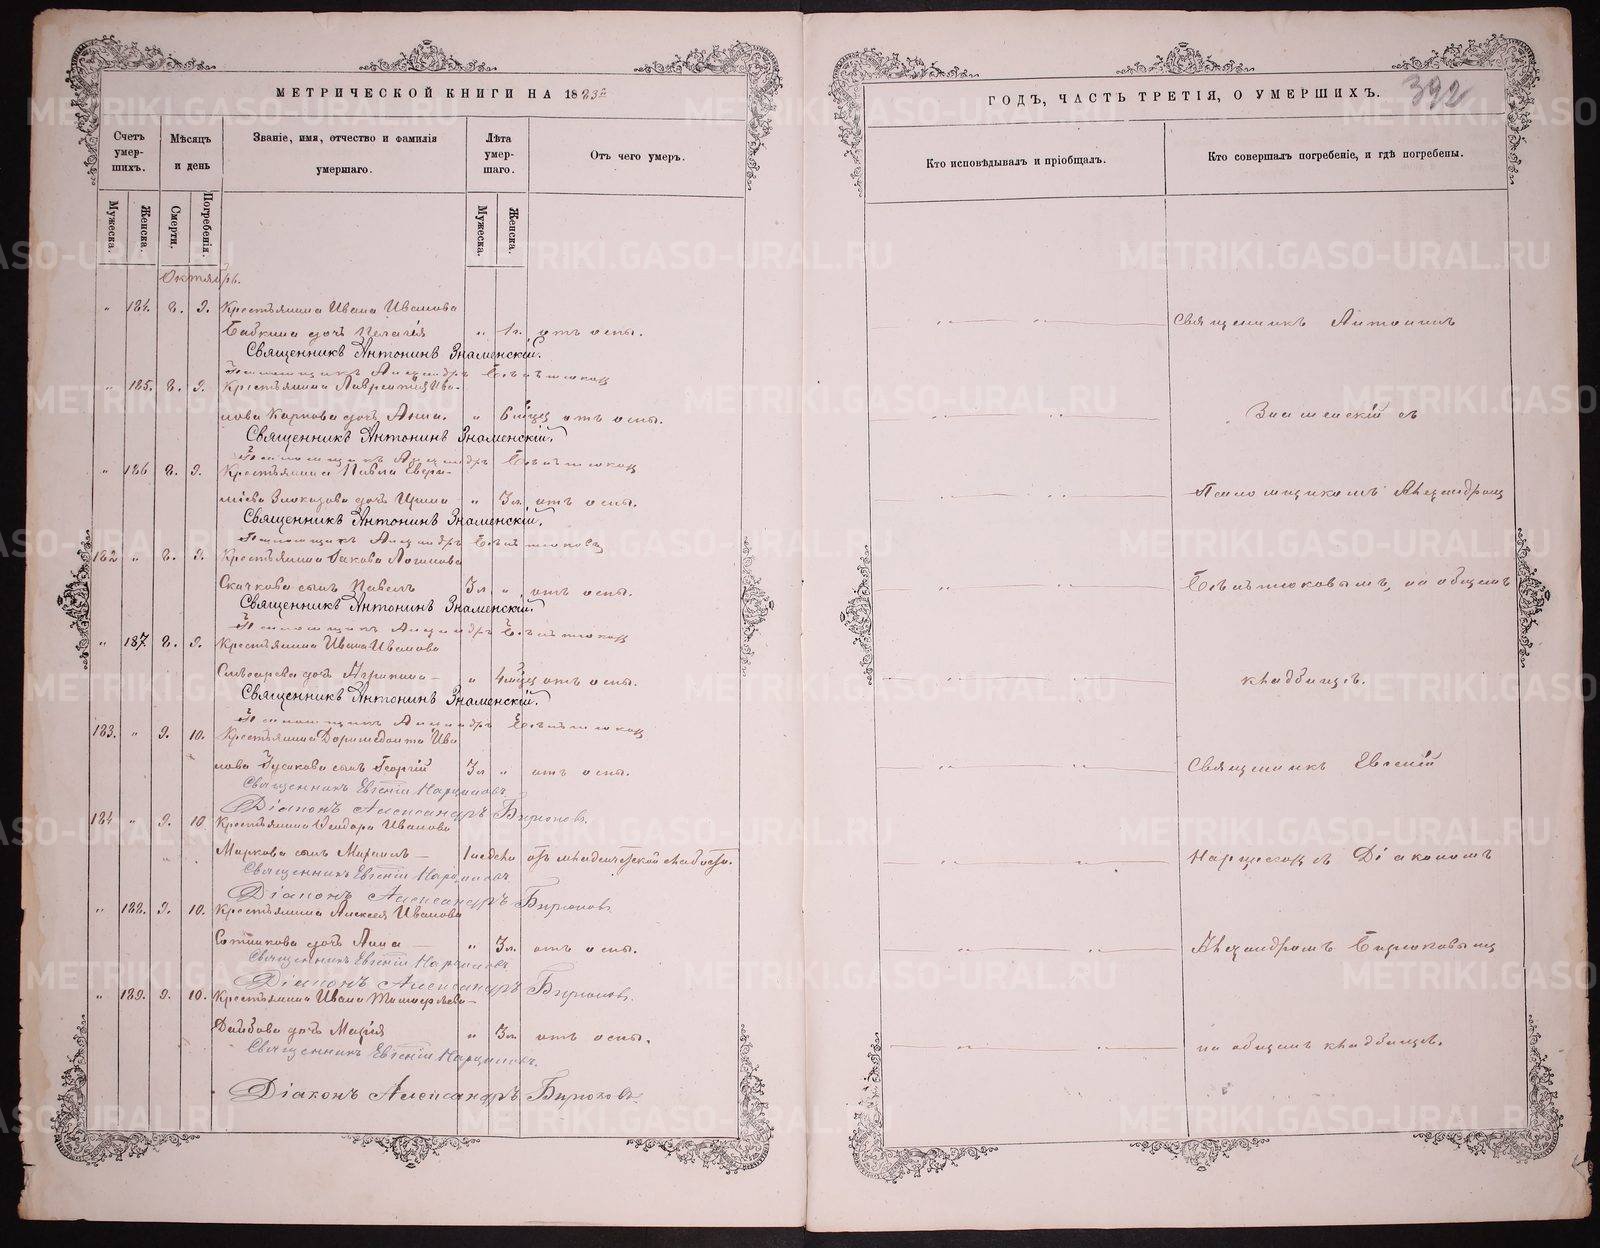 МЕТРИЧЕСКОЙ КНИГИ НА 1883й
Счетъ умер- шихъ.
Мѣсяцъ и день
Званіе, имя, отчество и фамилія умершаго.
Лѣта умер- шаго.
Отъ чего умеръ.
Мужеска.
Женска.
Смерти.
Погребенія.
Мужеска
Женска
Октябрь.
" 184. 8. 9. Крестьянина Ивана Иванова
Бабкина дочь Пелагія " 1 г. отъ оспы.
Священникъ Антонинъ Знаменскій.
Псаломщикъ Александръ
" 185. 8. 9. Крестьянина Лаврентія Ива-
нова Карпова дочь Анна. " 6 мѣсяц отъ оспы.
Священникъ Антонинъ Знаменскій.
Псаломщикъ Александръ
" 186 8. 9. Крестьянина Павла
дочь Ирина " 3 л. отъ оспы.
Священникъ Антонинъ Знаменскій.
Псаломщикъ Александръ
182 " 8. 9. Крестьянина Іакова Логинова
Скачкова сынъ Павелъ 3 л " отъ оспы.
Священникъ Антонинъ Знаменскій.
Псаломщикъ Александръ
" 187. 8. 9. Крестьянина Ивана Иванова
Слѣсарева дочь " 4 мѣсяц отъ оспы.
Священникъ Антонинъ Знаменскій.
Псаломщикъ Александръ
183. " 9. 10. Крестьянина Доримедонта Ива
нова Гусакова сынъ Георгій 3 л " отъ оспы.
Священникъ Евгеній
Діаконъ Александръ Бирюковъ.
184 " 9. 10 Крестьянина Ѳеодора Иванова
Маркова сынъ Михаилъ 1 недѣли отъ младенческой слабости.
Священникъ Евгеній
Діаконъ Александръ Бирюковъ
" 188. 9. 10. Крестьянина Алексея Иванова
Сотникова дочь Анна " 3 л. отъ оспы.
Священникъ Евгеній
Діаконъ Александръ Бирюковъ.
" 189. 9. 10. Крестьянина Ивана
дочь Марія " 3 л. отъ оспы.
Священникъ Евгеній
Діаконъ Александръ Бирюковъ.
ГОДЪ, ЧАСТЬ ТРЕТІЯ, О УМЕРШИХЪ.
392
Кто исповѣдывалъ и пріобщалъ.
Кто совершалъ погребеніе, и гдѣ погребены.
Священникъ Антонинъ
Знаменскій съ
Псаломщикомъ Александромъ
на общемъ
кладбищѣ.
Священникъ Евгеній
съ Діакономъ
Александромъ Бирюковымъ
на общемъ кладбищѣ.
METRIKI.GASO-URAL.RU